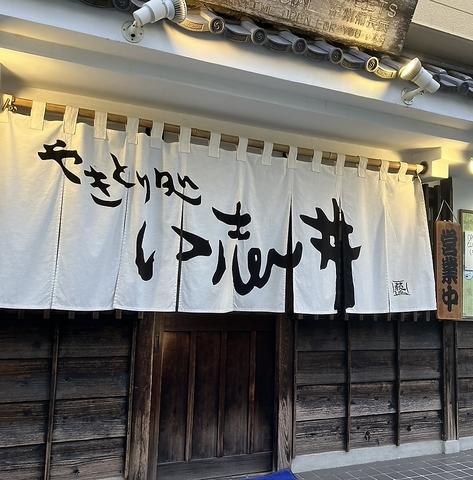 FOR YOU
やきとり処
い志井
営業中